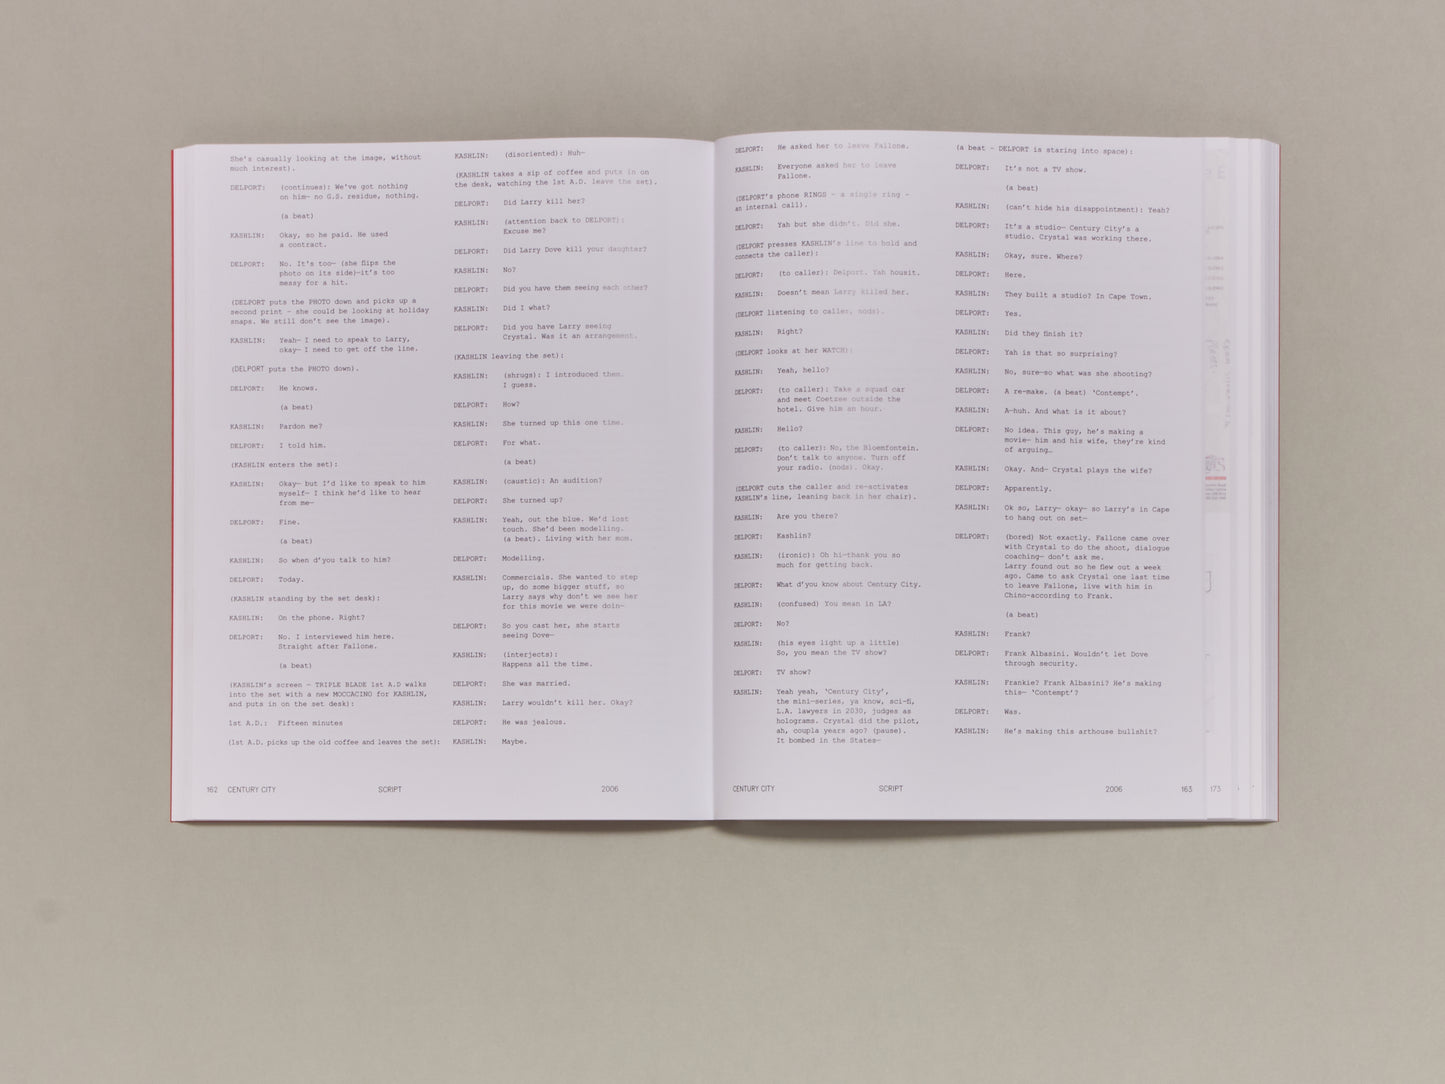 She's casually looking at the image, without
much interest).
DELPORT: (continues): We've got nothing
on him— no G.S. residue, nothing.
(a beat)
KASHLIN: Okay, so he paid. He used
a contract.
DELPORT: No. It's too— (she flips the
photo on its side)—it's too
messy for a hit.
(DELPORT puts the PHOTO down and picks up a
second print - she could be looking at holiday
snaps. We still don't see the image).
KASHLIN: Yeah— I need to speak to Larry,
okay— I need to get off the line.
(DELPORT puts the PHOTO down).
DELPORT: He knows.
(a beat)
KASHLIN: Pardon me?
DELPORT: I told him.
(KASHLIN enters the set):
KASHLIN: Okay— but I'd like to speak to him
myself— I think he'd like to hear
from me—
DELPORT: Fine.
(a beat)
KASHLIN: So when d'you talk to him?
DELPORT: Today.
(KASHLIN standing by the set desk):
KASHLIN: On the phone. Right?
DELPORT: No. I interviewed him here.
Straight after Fallone.
(a beat)
(KASHLIN's screen — TRIPLE BLADE 1st A.D walks
into the set with a new MOCCACINO for KASHLIN,
and puts in on the set desk):
1st A.D.: Fifteen minutes
(1st A.D. picks up the old coffee and leaves the set):
KASHLIN: (disoriented): Huh—
(KASHLIN takes a sip of coffee and puts in on
the desk, watching the 1st A.D. leave the set).
DELPORT: Did Larry kill her?
KASHLIN: (attention back to DELPORT):
Excuse me?
DELPORT: Did Larry Dove kill your daughter?
KASHLIN: No?
DELPORT: Did you have them seeing each other?
KASHLIN: Did I what?
DELPORT: Did you have Larry seeing
Crystal. Was it an arrangement.
(KASHLIN leaving the set):
KASHLIN: (shrugs): I introduced them.
I guess.
DELPORT: How?
KASHLIN: She turned up this one time.
DELPORT: For what.
(a beat)
KASHLIN: (caustic): An audition?
DELPORT: She turned up?
KASHLIN: Yeah, out the blue. We'd lost
touch. She'd been modelling.
(a beat). Living with her mom.
DELPORT: Modelling.
KASHLIN: Commercials. She wanted to step
up, do some bigger stuff, so
Larry says why don't we see her
for this movie we were doin—
DELPORT: So you cast her, she starts
seeing Dove—
KASHLIN: (interjects):
Happens all the time.
DELPORT: She was married.
KASHLIN: Larry wouldn't kill her. Okay?
DELPORT: He was jealous.
KASHLIN: Maybe.
162 CENTURY CITY SCRIPT 2006
DELPORT: He asked her to leave Fallone.
KASHLIN: Everyone asked her to leave
Fallone.
(DELPORT's phone RINGS - a single ring -
an internal call).
DELPORT: Yah but she didn't. Did she.
(DELPORT presses KASHLIN's line to hold and
connects the caller):
DELPORT: (to caller): Delport. Yah housit.
KASHLIN: Doesn't mean Larry killed her.
(DELPORT listening to caller, nods).
KASHLIN: Right?
(DELPORT looks at her WATCH):
KASHLIN: Yeah, hello?
DELPORT: (to caller): Take a squad car
and meet Coetzee outside the
hotel. Give him an hour.
KASHLIN: Hello?
DELPORT: (to caller): No, the Bloemfontein.
Don't talk to anyone. Turn off
your radio. (nods). Okay.
(DELPORT cuts the caller and re-activates
KASHLIN's line, leaning back in her chair).
KASHLIN: Are you there?
DELPORT: Kashlin?
KASHLIN: (ironic): Oh hi—thank you so
much for getting back.
DELPORT: What d'you know about Century City.
KASHLIN: (confused) You mean in LA?
DELPORT: No?
KASHLIN: (his eyes light up a little)
So, you mean the TV show?
DELPORT: TV show?
KASHLIN: Yeah yeah, 'Century City',
the mini—series, ya know, sci—fi,
L.A. lawyers in 2030, judges as
holograms. Crystal did the pilot,
ah, coupla years ago? (pause).
It bombed in the States—
(a beat - DELPORT is staring into space):
DELPORT: It's not a TV show.
(a beat)
KASHLIN: (can't hide his disappointment): Yeah?
DELPORT: It's a studio— Century City's a
studio. Crystal was working there.
KASHLIN: Okay, sure. Where?
DELPORT: Here.
KASHLIN: They built a studio? In Cape Town.
DELPORT: Yes.
KASHLIN: Did they finish it?
DELPORT: Yah is that so surprising?
KASHLIN: No, sure—so what was she shooting?
DELPORT: A re-make. (a beat) 'Contempt'.
KASHLIN: A—huh. And what is it about?
DELPORT: No idea. This guy, he's making a
movie— him and his wife, they're kind
of arguing…
KASHLIN: Okay. And— Crystal plays the wife?
DELPORT: Apparently.
KASHLIN: Ok so, Larry— okay— so Larry's in Cape
to hang out on set—
DELPORT: (bored) Not exactly. Fallone came over
with Crystal to do the shoot, dialogue
coaching— don't ask me.
Larry found out so he flew out a week
ago. Came to ask Crystal one last time
to leave Fallone, live with him in
Chino—according to Frank.
(a beat)
KASHLIN: Frank?
DELPORT: Frank Albasini. Wouldn't let Dove
through security.
KASHLIN: Frankie? Frank Albasini? He's making
this— 'Contempt'?
DELPORT: Was.
KASHLIN: He's making this arthouse bullshit?
CENTURY CITY SCRIPT 2006 163
173